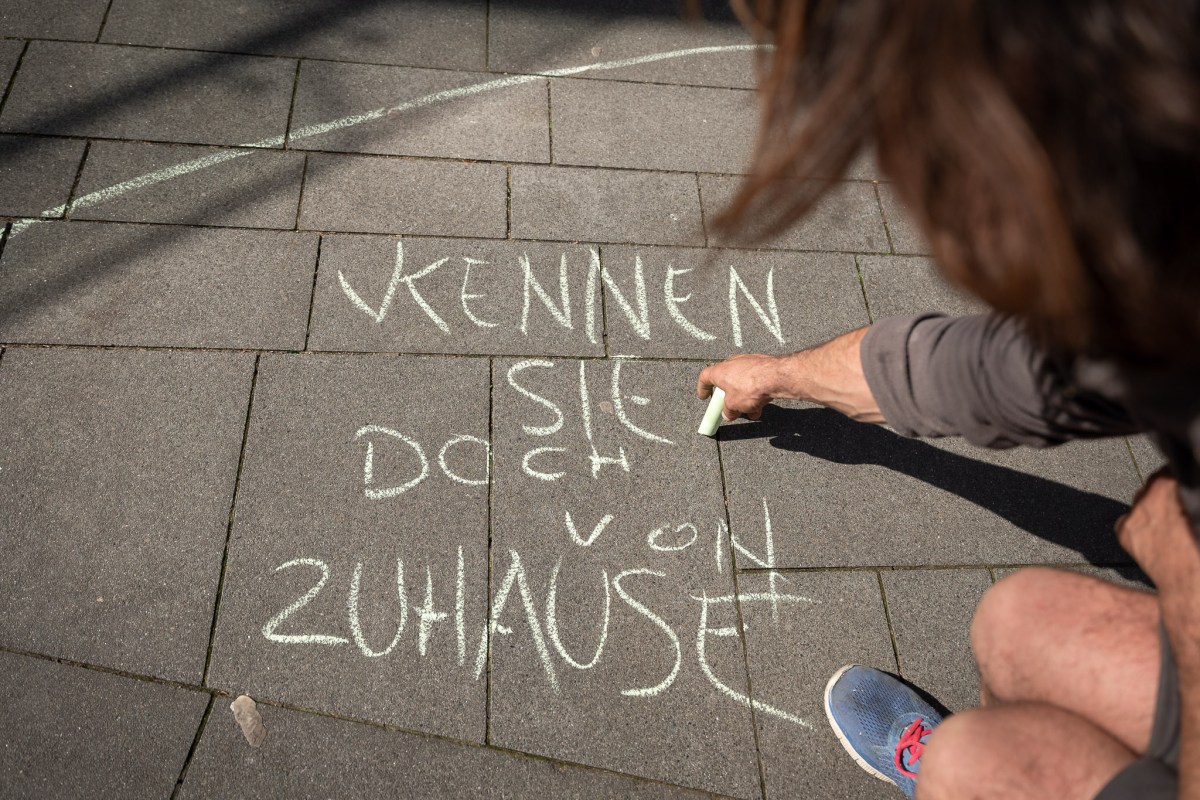 KENNEN
SIE
DOCH
VON
ZUHAUSE